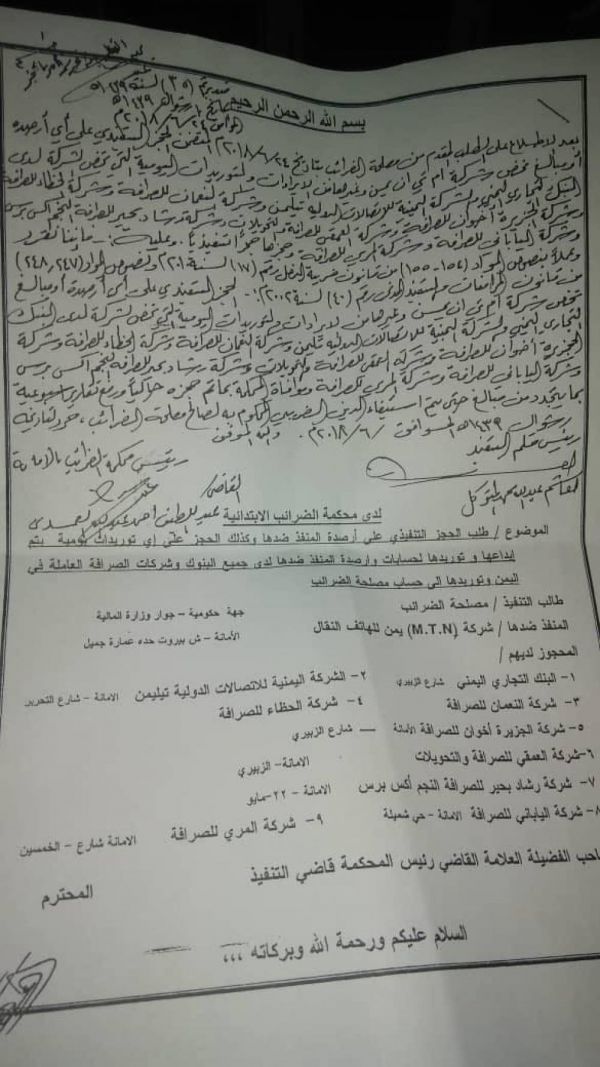 بسم الله الرحمن الرحيم
بعد الاطلاع على الطلب المقدم من مصلحة الضرائب بتاريخ ٢٠١٨/٦/٢٤م المتضمن الحجز التنفيذي على أي أرصدة
أو مبالغ تخص شركة ام تي ان يمن وغيرها من الايرادات والتوريدات اليومية التي تخص الشركة لدى
البنك التجاري اليمني والشركة اليمنية للاتصالات الدولية تيليمن وشركة النعمان للصرافة وشركة الحظاء للصرافة
وشركة الجزيرة أخوان للصرافة وشركة العمقي للصرافة والتحويلات وشركة رشاد بحير للصرافة النجم اكس برس
وشركة الياباني للصرافة وشركة المري للصرافة وحجزها حجزا تنفيذيا. وعليه: فإننا نقرر
وعملا بنصوص المواد (١٥٤-١٥٥) من قانون ضريبة الدخل رقم (١٧) لسنة ٢٠١٠م ونصوص المواد (٢٤٧، ٢٤٨)
من قانون المرافعات والتنفيذ المدني رقم (٤٠) لسنة ٢٠٠٢م: - الحجز التنفيذي على أي أرصدة أو مبالغ
تخص شركة ام تي ان يمن وغيرها من الايرادات والتوريدات اليومية التي تخص الشركة لدى البنك
التجاري اليمني والشركة اليمنية للاتصالات الدولية تيليمن وشركة النعمان للصرافة وشركة الحظاء للصرافة وشركة
الجزيرة أخوان للصرافة وشركة العمقي للصرافة والتحويلات وشركة رشاد بحير للصرافة النجم اكس برس
وشركة الياباني للصرافة وشركة المري للصرافة وموافاة المحكمة بما تم حجزه حاليا ورفع تقارير اسبوعية
بما يتجدد من مبالغ حتى يتم استيفاء الدين الضريبي المحكوم به لصالح مصلحة الضرائب،
شوال ١٤٣٩هـ الموافق / ٦ / ٢٠١٨م. والله الموفق
رئيس قلم التنفيذ
رئيس محكمة الضرائب بالأمانة
القاضي
لدى محكمة الضرائب الابتدائية
الموضوع / طلب الحجز التنفيذي على أرصدة المنفذ ضدها وكذلك الحجز على إي توريدات يومية يتم
إيداعها و توريدها لحسابات وارصدة المنفذ ضدها لدى جميع البنوك وشركات الصرافة العاملة في
اليمن وتوريدها الى حساب مصلحة الضرائب
طالب التنفيذ / مصلحة الضرائب جهة حكومية – جوار وزارة المالية
المنفذ ضدها / شركة (M.T.N) يمن للهاتف النقال الأمانة – ش بيروت حده عمارة جميل
المحجوز لديهم /
١- البنك التجاري اليمني شارع الزبيري ٢- الشركة اليمنية للاتصالات الدولية تيليمن الامانة – شارع التحرير
٣- شركة النعمان للصرافة ٤- شركة الحظاء للصرافة
٥- شركة الجزيرة أخوان للصرافة الأمانة – شارع الزبيري
٦-شركة العمقي للصرافة والتحويلات الامانة- الزبيري
٧- شركة رشاد بحير للصرافة النجم أكس برس الامانة – ٢٢-مايو
٨- شركة الياباني للصرافة الامانة – حي شميلة ٩- شركة المري للصرافة الامانة شارع – الخمسين
احب الفضيلة العلامة القاضي رئيس المحكمة قاضي التنفيذ المحترم
السلام عليكم ورحمة الله وبركاته ,,,